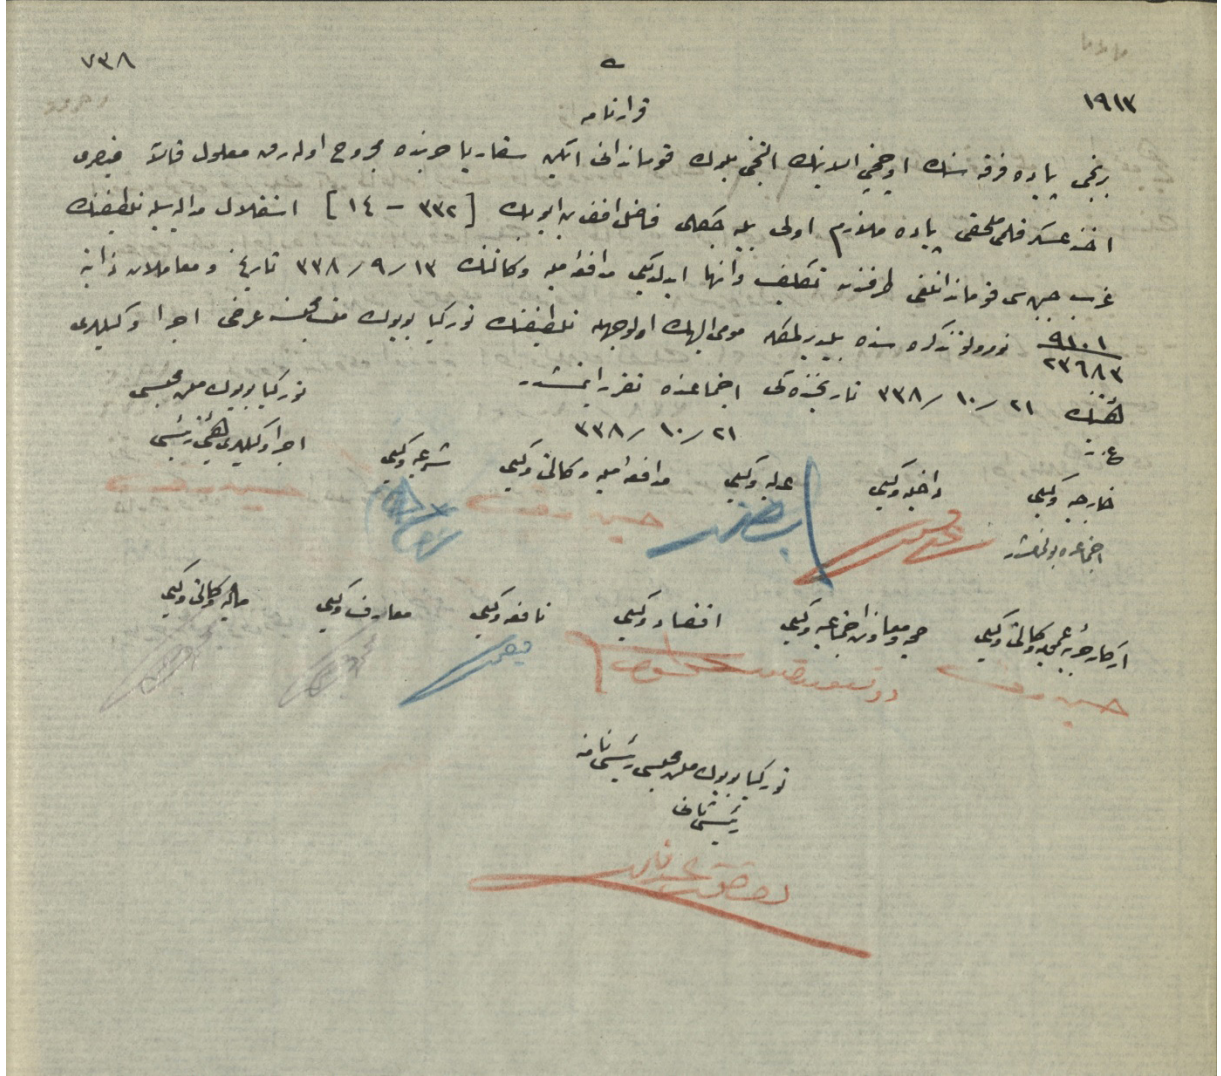 ٧٣٨
١٩١٣
قرارنامه
برنجی پیاده فرقه سنك اوچنجی الاینك التنجی بلوك قوماندانی ایكن سقاریا حربنده مجروح اوله رق معلول قالان قیصری
اخذ عسكر قلمی ملحقی پیاده ملازم اولی بیله جكلی فاضل افندی بن ایوبك [٣٣٢ – ١٤] استقلال مدالیه سیله تلطیفنك
غرب جبهه سی قوماندانلغی طرفندن تكلیف وانها ایدلدیكی مدافعۀ ملیه وكالتنك ١٣/٩/٣٣٨ تاریخ و معاملات ذاتیه
٩١٠١/٢٣٦٨٣ نومرولو تذكره سنده بیلدیرلمكله مومی الیهك اولوجهله تلطیفنك توركیا بویوك ملت مجلسنه عرضی اجرا وكیللری
هیئتنك ٢١/١٠/٣٣٨ تاریخنده كی اجتماعنده تقرر ایتمشدر
٢١/١٠/٣٣٨
ع.ر
توركیا بویوك ملت مجلسی
اجرا وكیللری هیئتی رئیسی
شرعیه وكیلی
مدافعۀ ملیه وكالتی وكیلی
عدلیه وكیلی
داخلیه وكیلی
خارجیه وكیلی
حسین رؤف
حسین رؤف
اجتماعده بولنمامشدر
اركان حربیۀ عمومیه وكالتی وكیلی
صحیه و معاونت اجتماعیه وكیلی
اقتصاد وكیلی
نافعه وكیلی
معارف وكیلی
مالیه وكالتی وكیلی
حسین رؤف
دوقتور رضا نور
توركیا بویوك ملت مجلسی رئیسی نامنه
رئیس ثانی